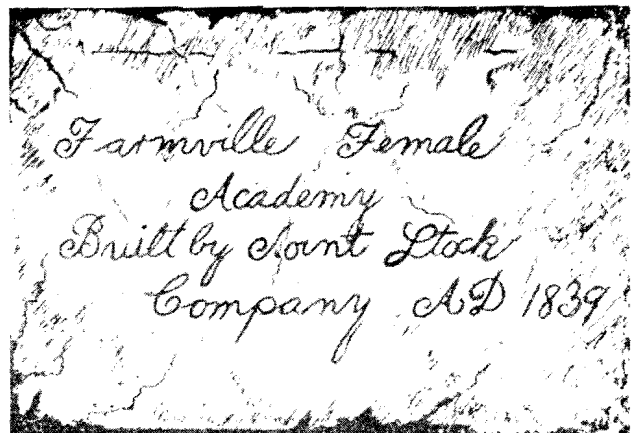 Farmville Female
Academy
Built by Joint Stock
Company AD 1839